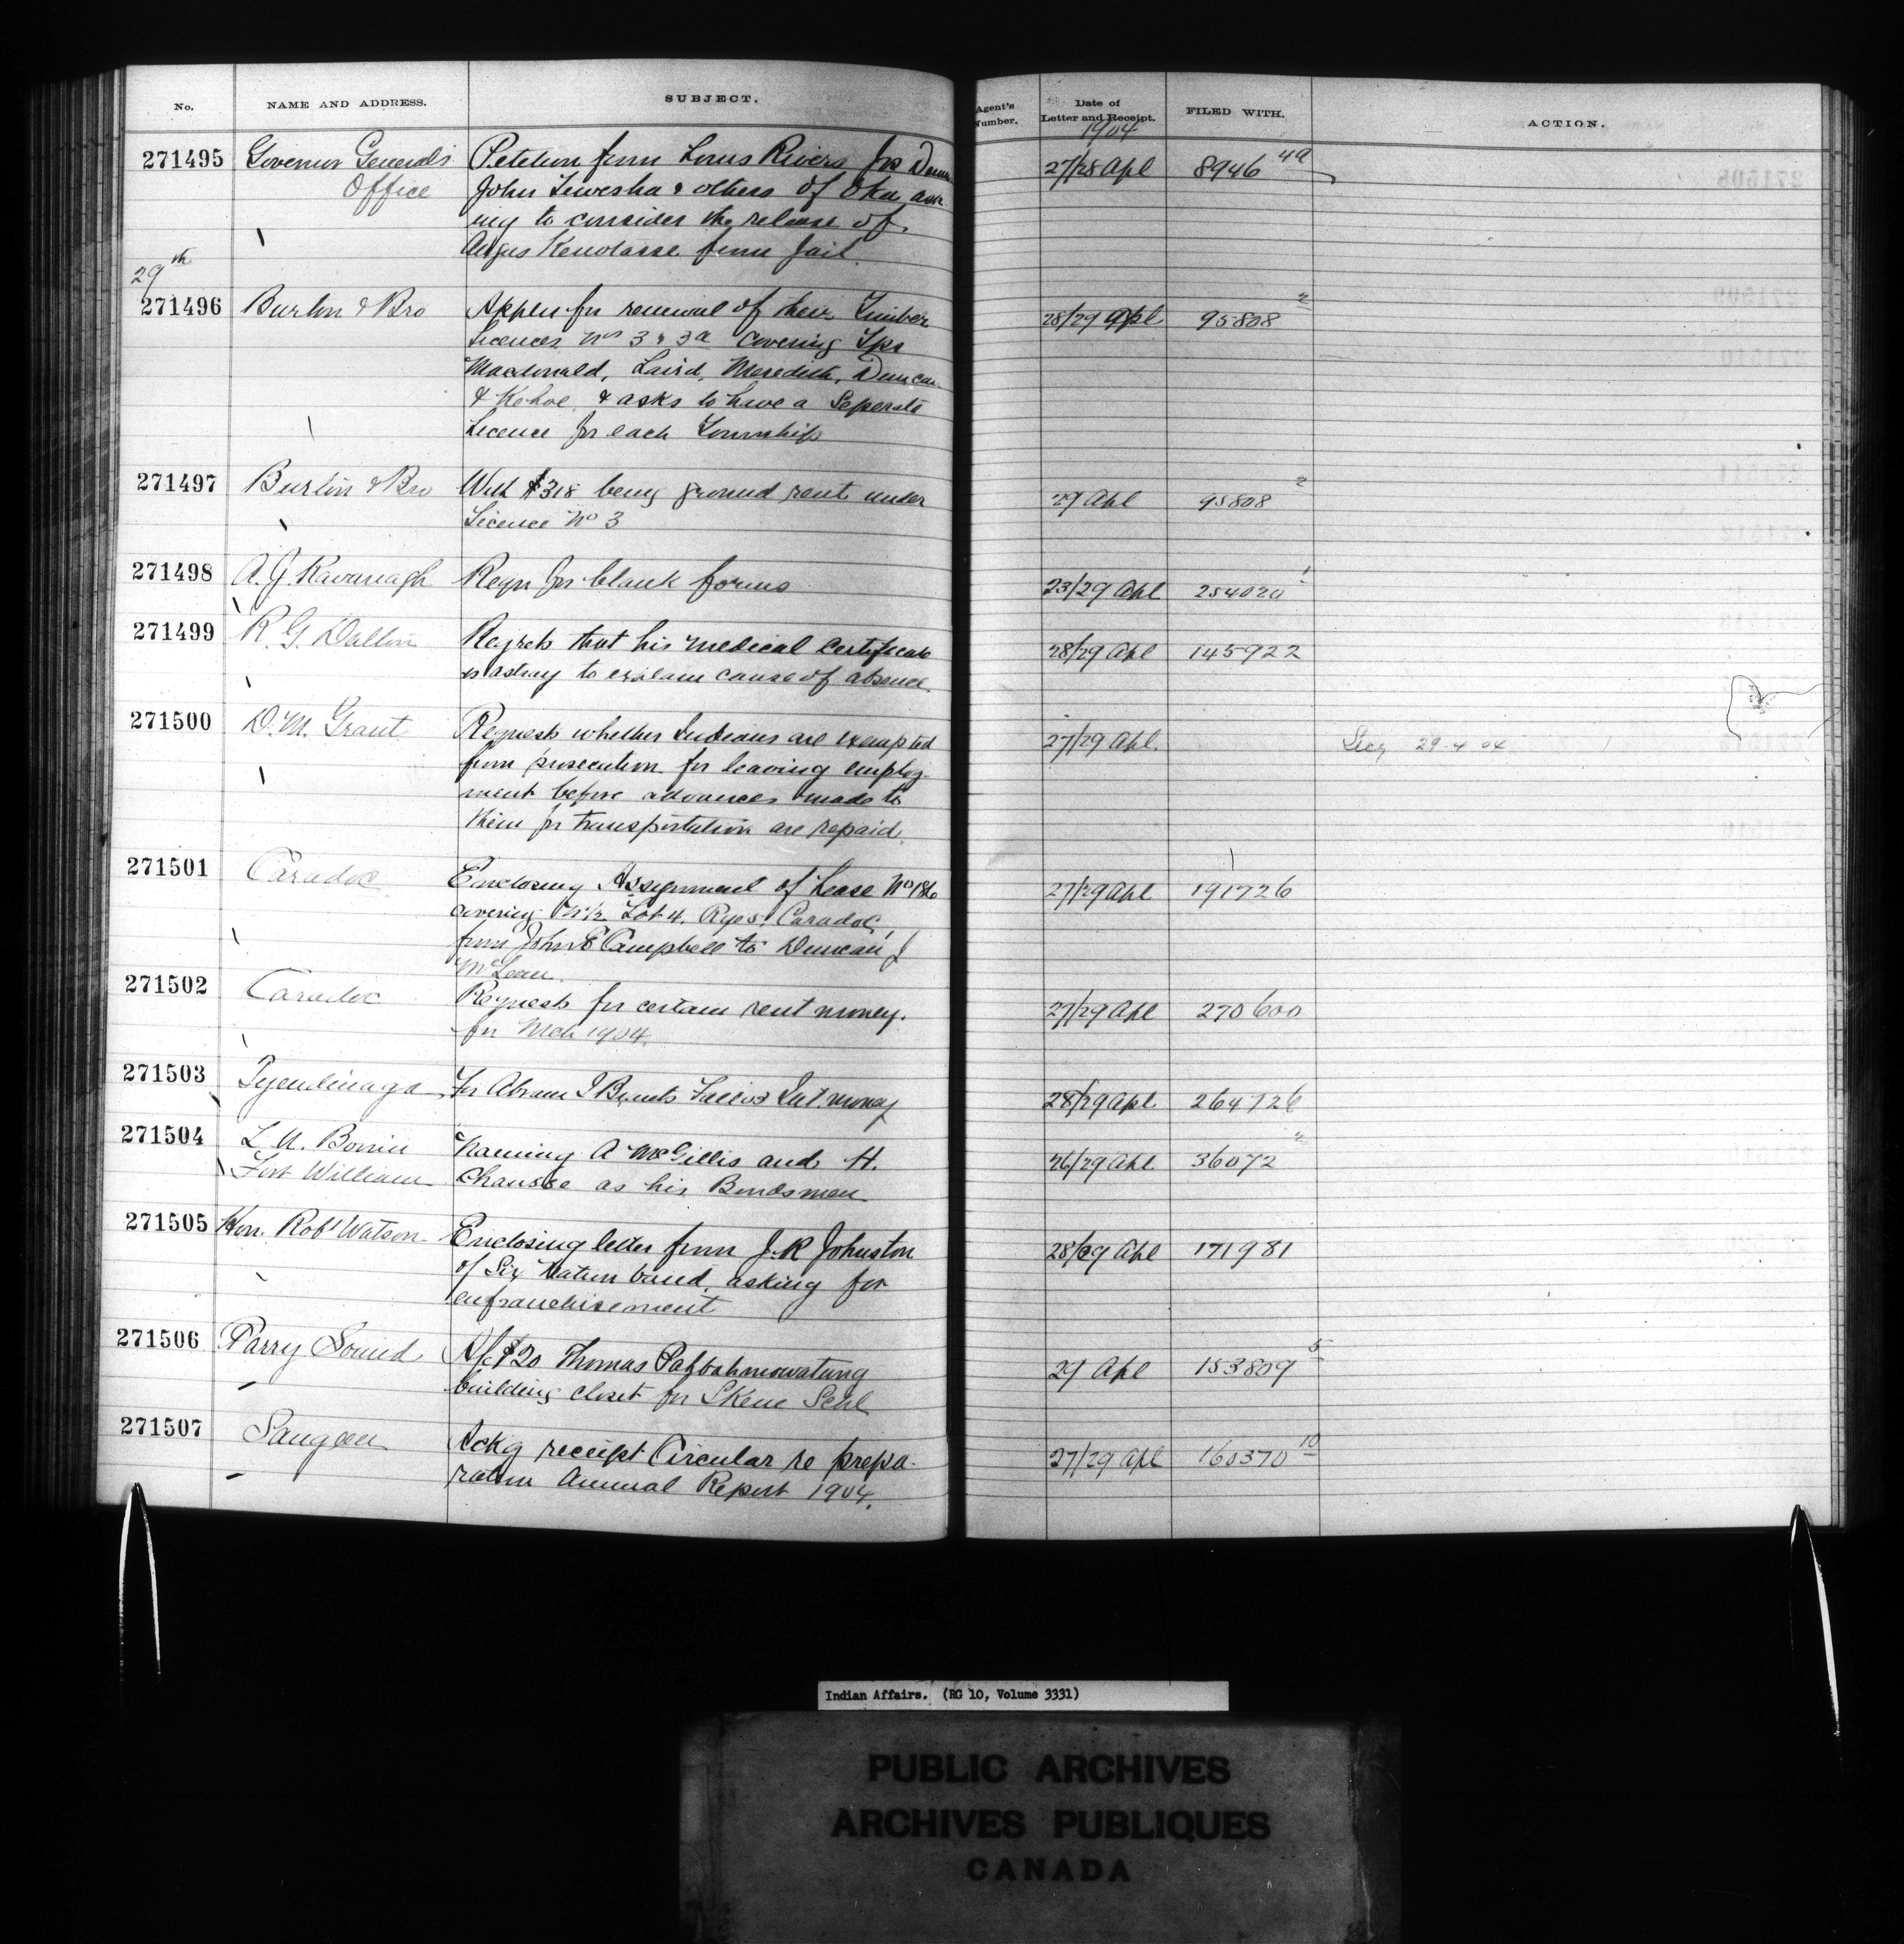 No. NAME AND ADDRESS. SUBJECT. Agent's Number. Date of Letter and Receipt. FILED WITH. ACTION.
1904
271495 Governor General's Petition from Louis Rivers Jos 27/28 Apl 8946 4a
Office John & others of Oka ask
ing to consider the release of
Angus from Jail.
29th
271496 Burton & Bro Apples for renewal of their Timber 28/29 Apl 95808 2
Licences Nos 3 & 3a covering Tps
Macdonald, Laird, Meredith, Duncan
& Kehoe, & asks to have a Seperate
Licence for each Township
271497 Burton & Bro With $318 being ground rent under 29 Apl 95808 2
Licence No 3
271498 A. J. Kavanagh Reqn for blank forms 23/29 Apl 254020 1
271499 R. G. Dalton Regrets that his medical Certificate 28/29 Apl 145922
is astray to explain cause of absence.
271500 D. M. Grant Requests whether Indians are exempted 27/29 Apl. Secy 29-4-04
from prosecution for leaving employ-
ment before advances made to
them for transportation are repaid.
271501 Caradoc Enclosing Assignment of Lease No 186 27/29 Apl 191726
covering N½ Lot 4. Rge 5. Caradoc,
from John E Campbell to Duncan J
McLean.
271502 Caradoc Requests for certain rent money. 27/29 Apl 270600
for Mch 1904.
271503 Tyendinaga For Abram I Brants Int. money 28/29 Apl 264726
271504 L. N. Bonin Naming A McGillis and H. 26/29 Apl 36072 2
Fort William Chausse as his Bondsmen
271505 Hon. Robt Watson Enclosing letter from J. R Johnston 28/29 Apl 171981
of Six Nation band, asking for
enfranchisement
271506 Parry Sound A/c $20 Thomas Pahbahmowatung 29 Apl 153809 5
building closet for Skene Schl
271507 Saugeen Ackg receipt Circular re prepa- 27/29 Apl 160370 10
ration Annual Report 1904.
Indian Affairs. (RG 10, Volume 3331)
PUBLIC ARCHIVES
ARCHIVES PUBLIQUES
CANADA